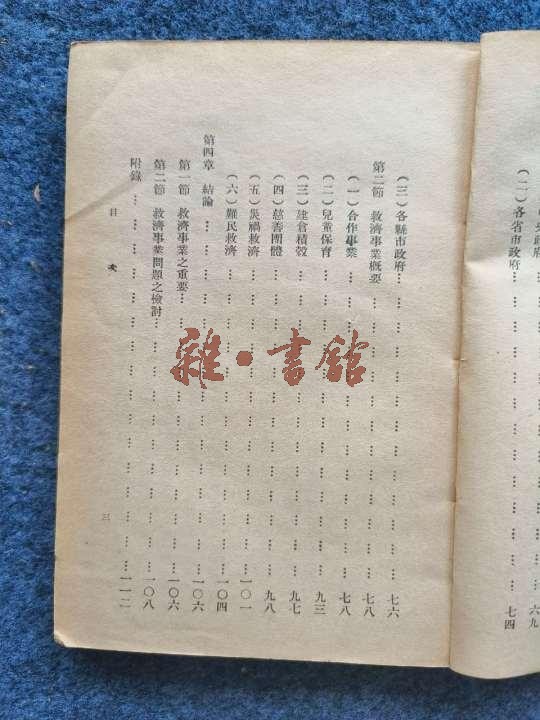 (二)各省市政府… … … … … … … 七四
(三)各縣市政府… … … … … … … 七六
第二節 救濟事業概要… … … … … … … 七八
(一)合作事業… … … … … … … 七八
(二)兒童保育… … … … … … … 九三
(三)建倉積穀… … … … … … … 九七
(四)慈善團體… … … … … … … 九八
(五)災禍救濟… … … … … … … 一〇一
(六)難民救濟… … … … … … … 一〇四
第四章 結論… … … … … … … 一〇六
第一節 救濟事業之重要… … … … … … … 一〇六
第二節 救濟事業問題之檢討… … … … … … … 一〇八
附錄… … … … … … … 一一二
目 次
三
雜·書館